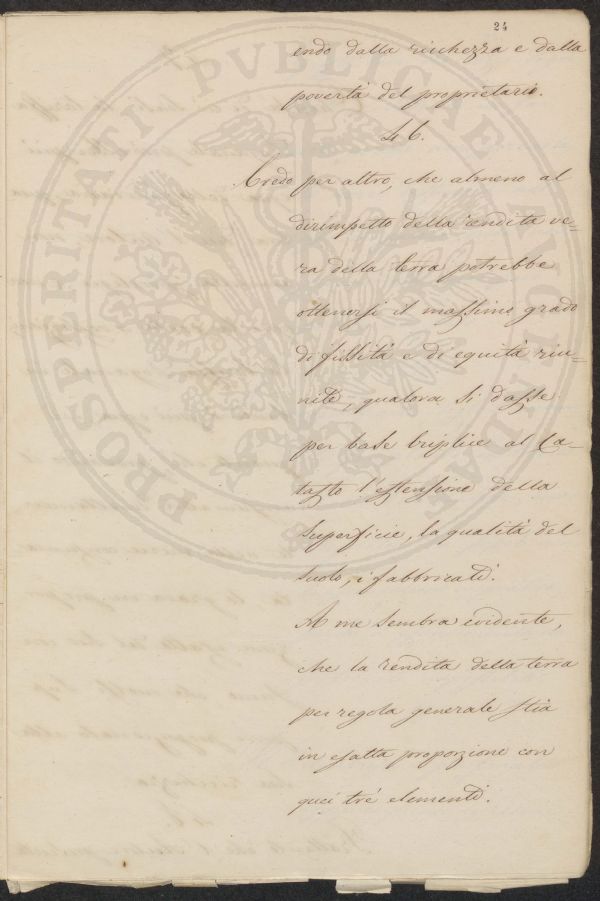 24
endo dalla ricchezza e dalla
povertà del proprietario.
46.
Credo per altro, che almeno al
dirimpetto della rendita ve=
ra della terra potrebbe
ottenersi il massimo grado
di fissità e di equità riu=
nite, qualora si dasse
per base triplice al Ca=
tasto l'estensione della
superficie, la qualità del
suolo, i fabbricati.
A me sembra evidente,
che la rendita della terra
per regola generale stia
in esatta proporzione con
quei trè elementi.
PROSPERITATI PUBLICAE AUGENDAE